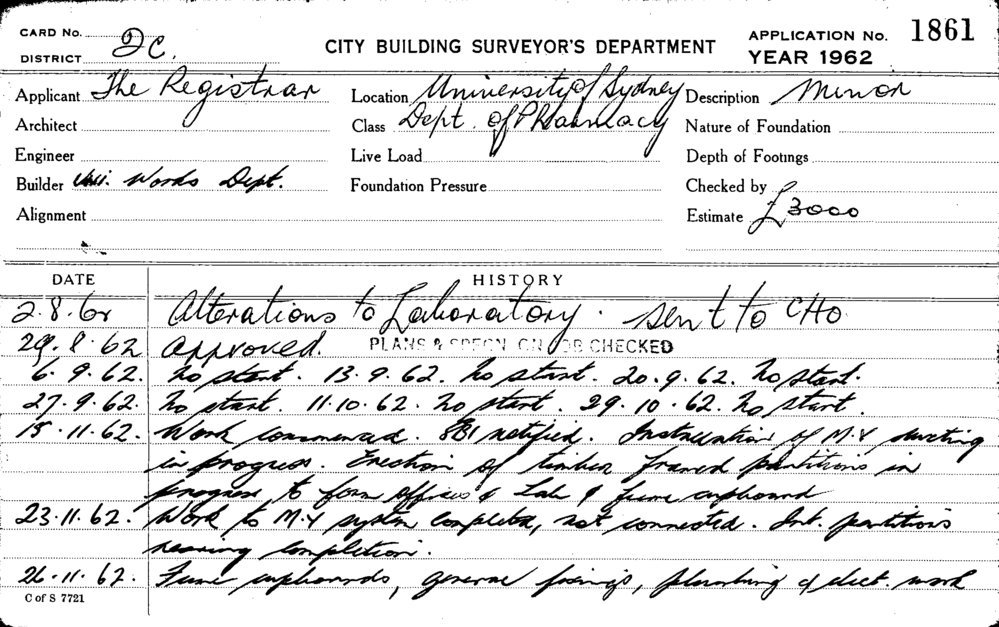 CARD No.
DISTRICT 2C.
CITY BUILDING SURVEYOR'S DEPARTMENT
APPLICATION No. 1861
YEAR 1962
Applicant The Registrar
Location University of Sydney
Description Minor
Architect
Class Dept. of Pharmacy
Nature of Foundation
Engineer
Live Load
Depth of Footings
Builder Uni. Works Dept.
Foundation Pressure
Checked by
Alignment
Estimate £3000
DATE HISTORY
2.8.62 Alterations to Laboratory. sent to CHO
29.8.62 Approved. PLANS & SPECN ON JOB CHECKED
6.9.62. No start. 13.9.62. No start. 20.9.62. No start.
27.9.62. No start. 11.10.62. No start. 29.10.62. No start.
15.11.62. Work commenced. notified. Installation of M.V ducting
in progress. Erection of timber framed partitions in
progress to form offices & Lab & fume cupboard
23.11.62. Work to M.V system completed, not connected. Int. partitions
nearing completion.
26.11.62. Fume cupboards, general fixings, plumbing & elect. work
C of S 7721